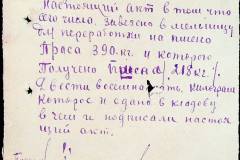 настоящий акт в том что
сего числа. Завезено в мельницу
для переработки на пшено
Проса 390 кг. и которого
Получено Пшена 218 кг.
Двести восемнадцать килограм
Которое и сдано в кладову
в чем и подписали настоя
щий акт.